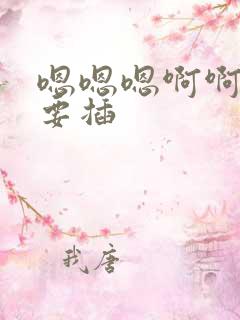 嗯嗯嗯啊啊
要插
我唐